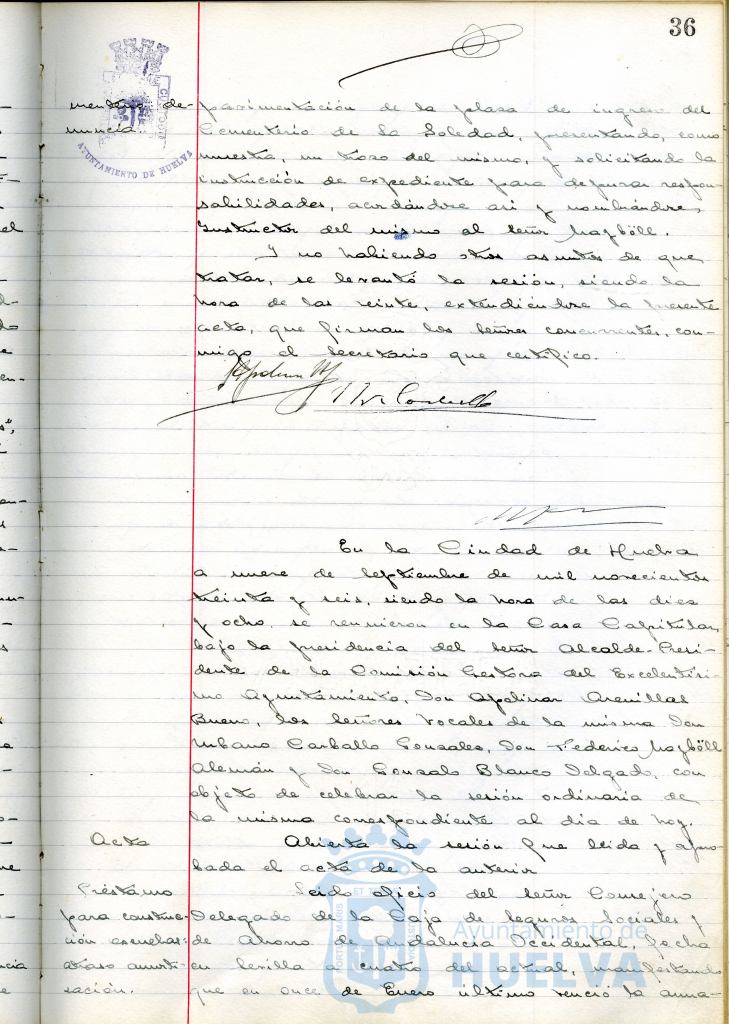 36
AYUNTAMIENTO DE HUELVA
menterio de-
nuncia.
pavimentación de la plaza de ingreso del
Cementerio de La Soledad, presentando, como
muestra, un trozo del mismo, y solicitando la
instrucción de expediente para depurar respon-
sabilidades, acordándose así y nombrándose
Instructor del mismo al Señor Mazböll.
Y no habiendo otros asuntos de que
tratar, se levantó la sesión, siendo la
hora de las veinte, extendiéndose la presente
acta, que firman los Señores concurrentes, con-
migo el Secretario que certifico.
En la Ciudad de Huelva
a nueve de Septiembre de mil novecientos
treinta y seis, siendo la hora de las diez
y ocho, se reunieron en la Casa Capitular,
bajo la presidencia del Señor Alcalde-Presi-
dente de la Comisión Gestora del Excelentísi-
mo Ayuntamiento, Don Apolinar Arenillas
Bueno, los Señores Vocales de la misma Don
Urbano Carballo Gonzales, Don Federico Mazböll
Alemán y Don Gonzalo Blanco Delgado, con
objeto de celebrar la sesión ordinaria de
la misma correspondiente al día de hoy.
Acta
Abierta la sesión fue leida y apro-
bada el acta de la anterior
Préstamo
para construc-
ción escuelas:
atraso amorti-
zación.
Leido oficio del Señor Consejero
Delegado de la Caja de Seguros Sociales y
de Ahorro de Andalucia Occidental, fecha
en Sevilla a cuatro del actual, manifestando
que en once de Enero último venció la anua-
Ayuntamiento de
HUELVA